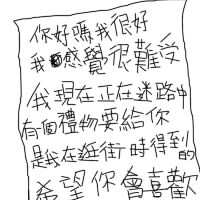 你好嗎我很好
我感覺很難受
我現在正在迷路中
有個禮物要給你
是我在逛街時得到的
希望你會喜歡